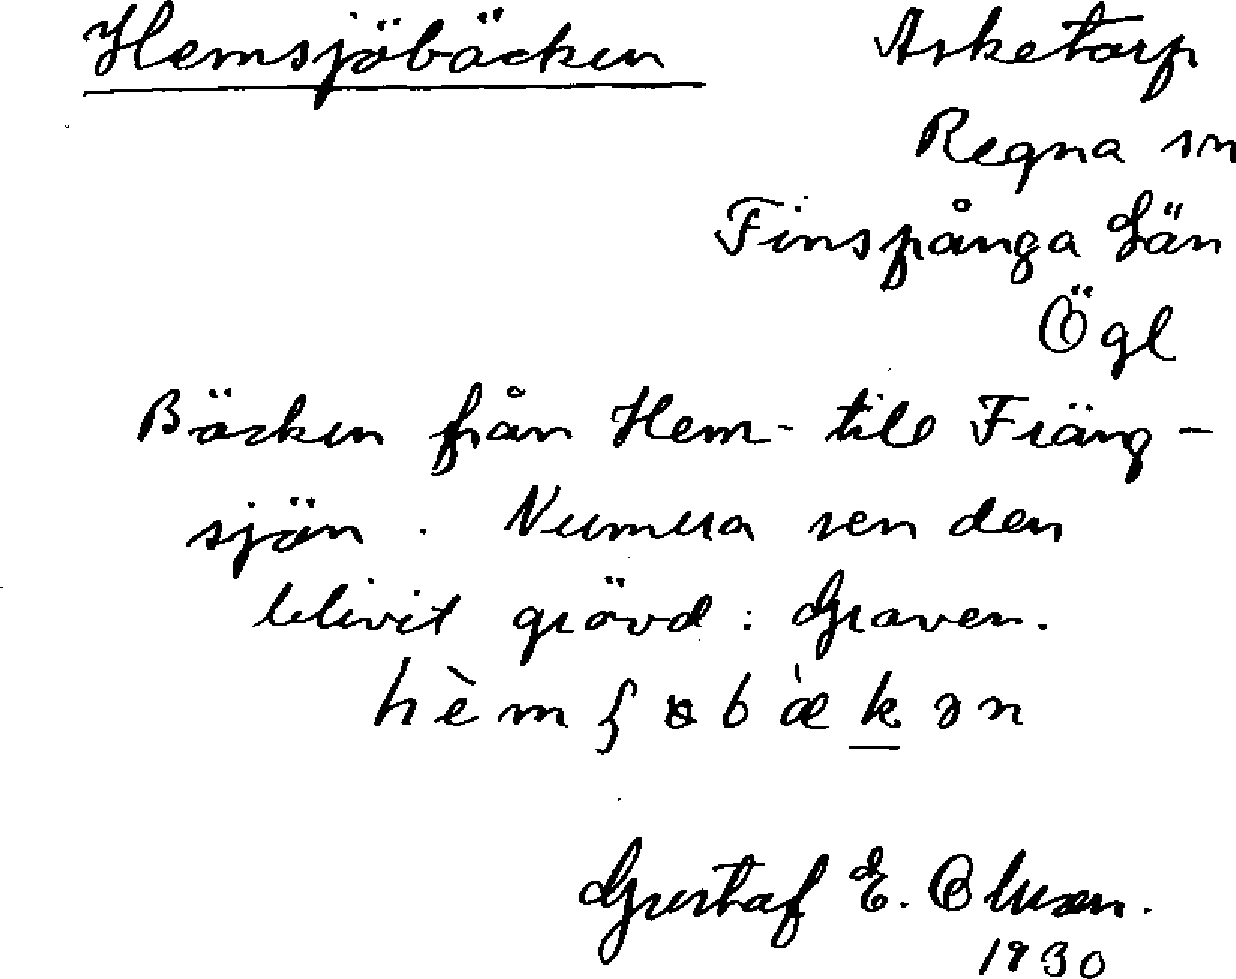 Hemsjöbäcken
Asketorp
Regna sn
Finspånga Län
Ögl
Bäcken från Hem- till Fräng-
sjön. Numera sen den
blivit grävd: Graven.
1930